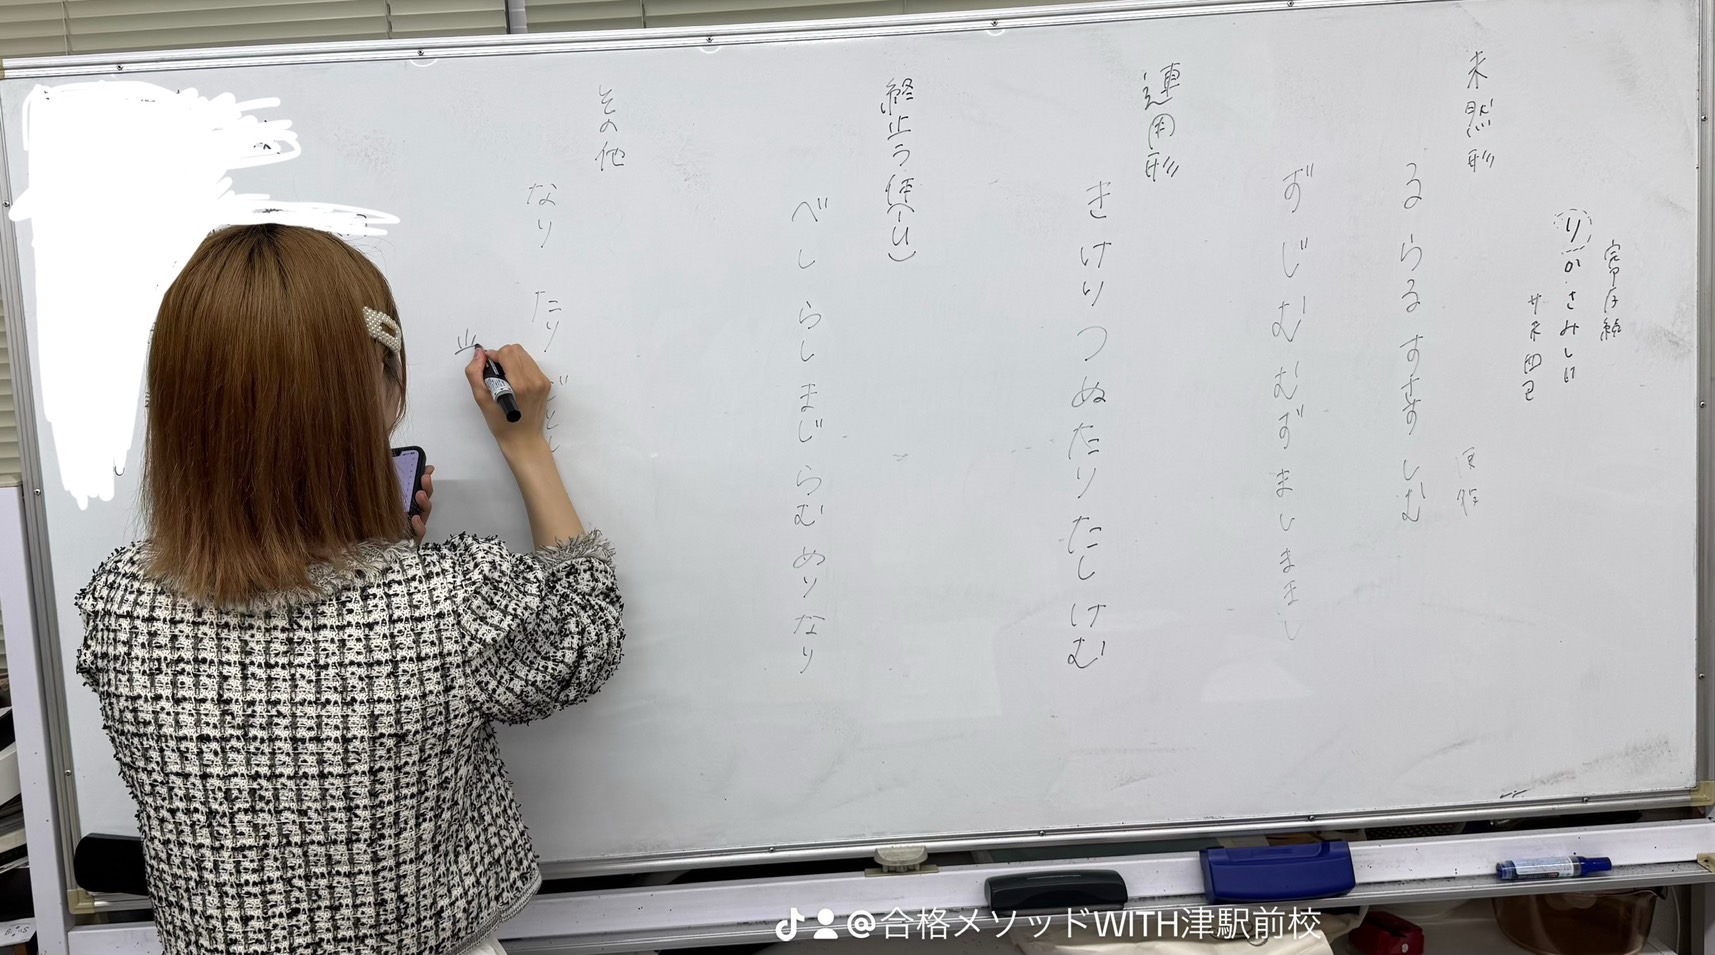 完了存続
りかさみしい
サ未四已
未然形
る らる す さす しむ
ず じ む むず まし まほし
連用形
き けり つ ぬ たり たし けむ
終止う使(ヘU)
べし らし まじ らむ めり なり
その他
なり たり ごとし
@合格メソッドWITH津駅前校